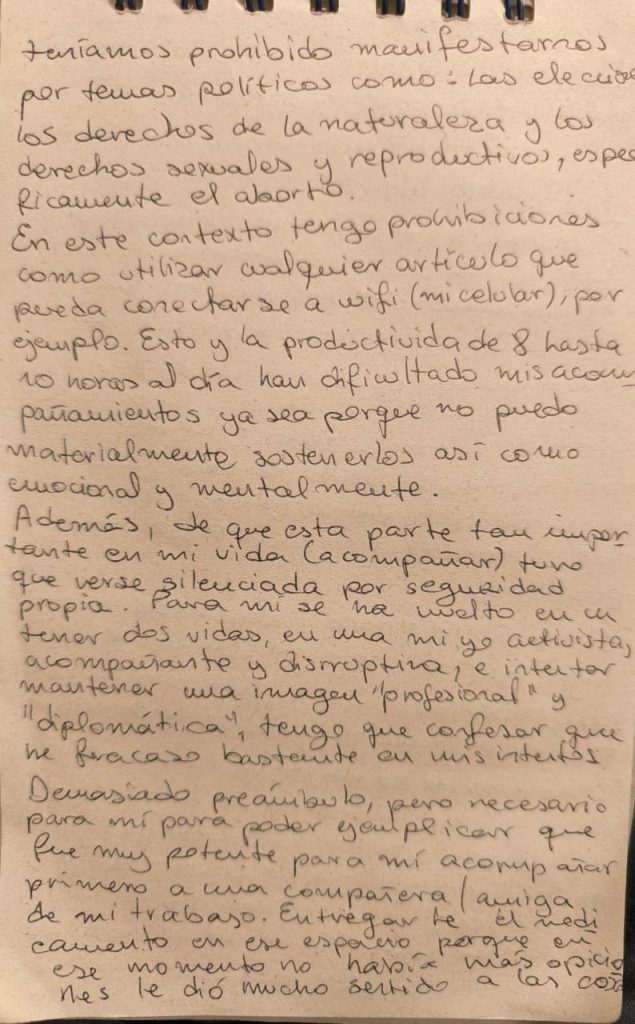 teníamos prohibido manifestarnos
por temas políticos como: las eleccio
los derechos de la naturaleza y los
derechos sexuales y reproductivos, espec
ficamente el aborto.
En este contexto tengo prohibiciones
como utilizar cualquier artículo que
pueda conectarse a wifi (mi celular), por
ejemplo. Esto y la productividad de 8 hasta
10 horas al día han dificultado mis acom
pañamientos ya sea porque no puedo
materialmente sostenerlos así como
emocional y mentalmente.
Además, de que esta parte tan impor-
tante en mi vida (acompañar) tuvo
que verse silenciada por seguridad
propia. Para mí se ha vuelto en un
tener dos vidas, en una mi yo activista,
acompañante y disruptiva, e intentar
mantener una imagen "profesional" y
"diplomática", tengo que confesar que
he fracaso bastante en mis intentos
Demasiado preámbulo, pero necesario
para mí para poder ejemplicar que
fue muy potente para mí acompañar
primero a una compañera/amiga
de mi trabajo. Entregarle el medi
camento en ese espacio porque en
ese momento no había más opcio
nes le dió mucho sentido a las cosa